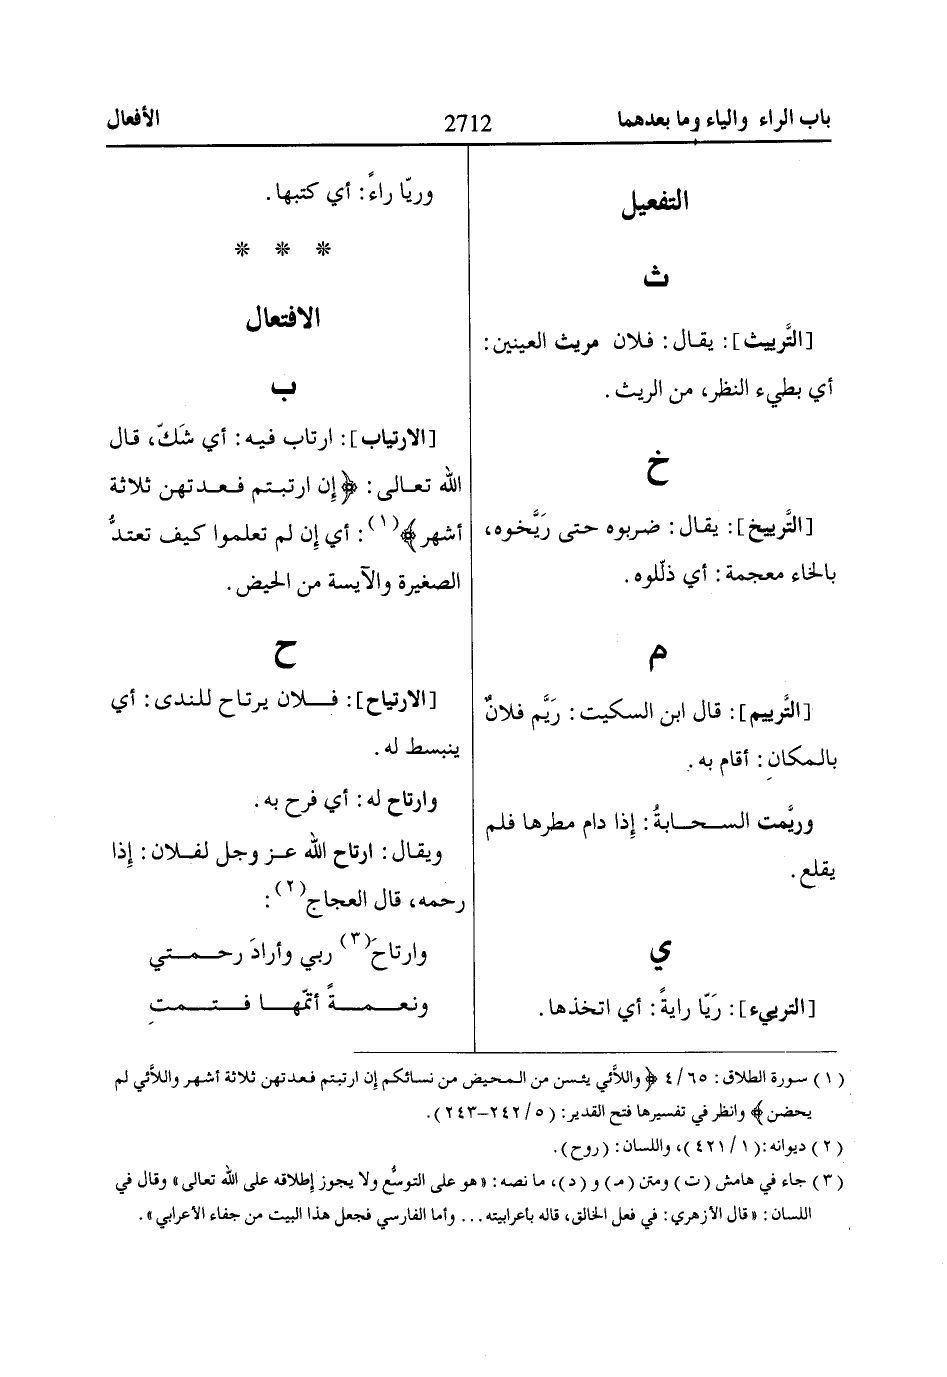 باب الراء والياء وما بعدهما
2712
الأفعال
التفعيل
ث
[التَّرييث]: يقال: فلان مريث العينين:
أي بطيء النظر، من الريث.
خ
[التَّرييخ]: يقال: ضربوه حتى رَيَّخوه،
بالخاء معجمة: أي ذلّلوه.
م
[التَّرييم]: قال ابن السكيت: رَيَّم فلانٌ
بالمكانِ: أقام به.
وريَّمت السحابةُ: إذا دام مطرها فلم
يقلع.
ي
[التربيء]: رَيّا رايةً: أي اتخذها.
وريّا راءً: أي كتبها.
* * *
الافتعال
ب
[الارتياب]: ارتاب فيه: أي شَكّ، قال
الله تعالى: ﴿إن ارتبتم فعدتهن ثلاثة
أشهر﴾(١): أي إن لم تعلموا كيف تعتدُّ
الصغيرة والآيسة من الحيض.
ح
[الارتياح]: فلان يرتاح للندى: أي
ينبسط له.
وارتاح له: أي فرح به.
ويقال: ارتاح الله عز وجل لفلان: إذا
رحمه، قال العجاج(٢):
وارتاحَ(٣) ربي وأرادَ رحمتي
ونعمةً أتمّها فتمتِ
(١) سورة الطلاق: ٤/٦٥ ﴿واللاَّئي يئسن من المحيض من نسائكم إن ارتبتم فعدتهن ثلاثة أشهر واللاَّئي لم
يحضن﴾ وانظر في تفسيرها فتح القدير: (٥/٢٤٢-٢٤٣).
(٢) ديوانه: (١/٤٢١)، واللسان: (روح).
(٣) جاء في هامش (ت) ومتن (م) و (د)، ما نصه: «هو على التوسُّع ولا يجوز إطلاقه على الله تعالى» وقال في
اللسان: «قال الأزهري: في فعل الخالق، قاله بأعرابيته... وأما الفارسي فجعل هذا البيت من جفاء الأعرابي».